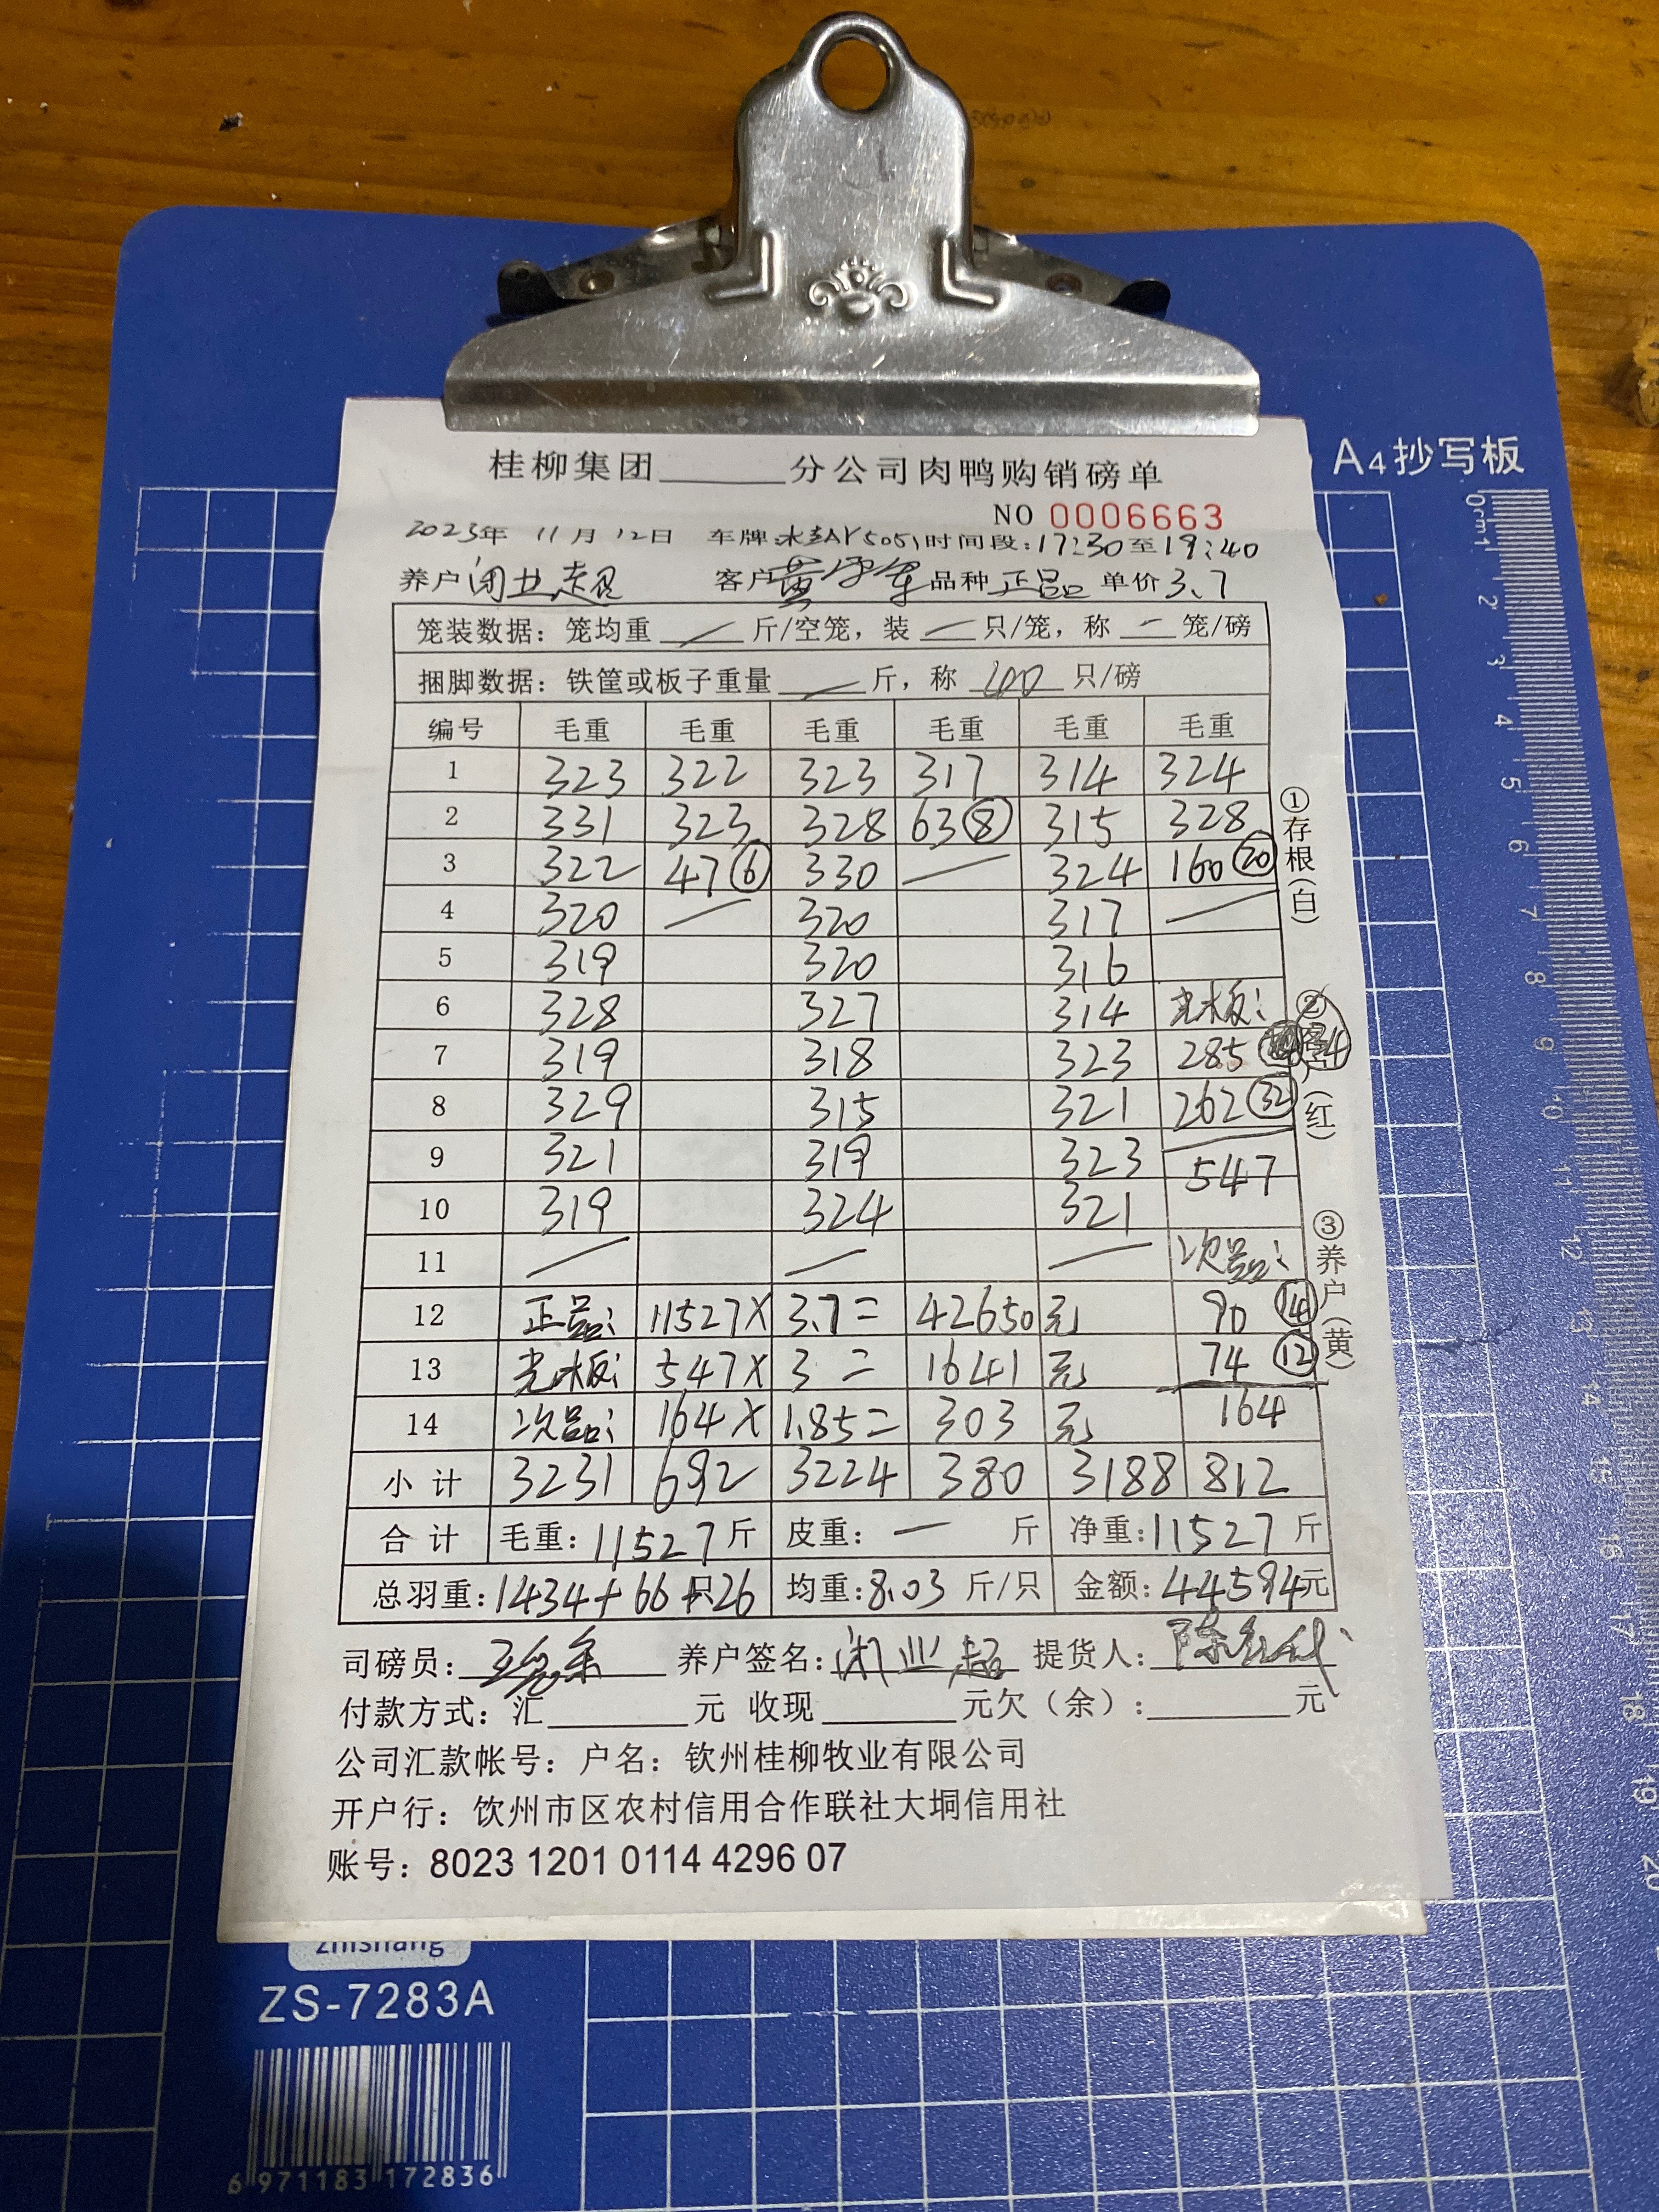 A4抄写板
桂柳集团______分公司肉鸭购销磅单
NO 0006663
2023年 11月 12日 车牌: 时间段:17:30至19:40
养户 闭业超 客户 黄 品种 正品 单价 3.7
笼装数据：笼均重 / 斤/空笼，装 一 只/笼，称 一 笼/磅
捆脚数据：铁筐或板子重量 / 斤，称 100 只/磅
编号 毛重 毛重 毛重 毛重 毛重 毛重
1 323 322 323 317 314 324
2 331 323 328 63⑧ 315 328
3 322 47⑥ 330 / 324 160⑳
4 320 / 320 317 /
5 319 320 316
6 328 327 314 光板:
7 319 318 323 285 34
8 329 315 321 262㉜
9 321 319 323 547
10 319 324 321
11 / / / 次品:
12 正品: 11527× 3.7= 42650 元 90⑭
13 光板: 547× 3= 1641 元 74⑫
14 次品: 164× 1.85= 303 元 164
小计 3231 692 3224 380 3188 812
合计 毛重:11527斤 皮重: 一 斤 净重:11527斤
总羽重:1434+66+26只 均重:8.03 斤/只 金额:44594元
司磅员: 养户签名:闭业超 提货人:陈
付款方式：汇______元 收现______元欠（余）:______元
公司汇款帐号：户名：钦州桂柳牧业有限公司
开户行：饮州市区农村信用合作联社大垌信用社
账号：8023 1201 0114 4296 07
①存根(白)
②
(红)
③养户(黄)
zhishang
ZS-7283A
6 971183 172836
0cm1 2 3 4 5 6 7 8 9 10 11 12 13 14 15 16 17 18 19 20